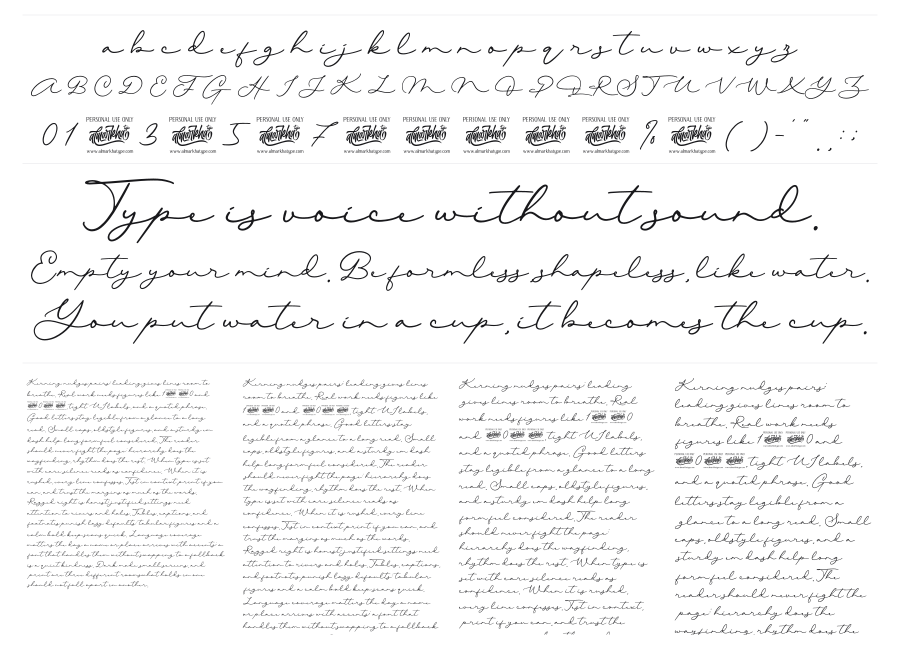 a b c d e f g h i j k l m n o p q r s t u v w x y z
A B C D E F G H I J K L M N O P Q R S T U V W X Y Z
0 1 PERSONAL USE ONLY www.almarkhatype.com 3 PERSONAL USE ONLY www.almarkhatype.com 5 PERSONAL USE ONLY www.almarkhatype.com 7 PERSONAL USE ONLY www.almarkhatype.com PERSONAL USE ONLY www.almarkhatype.com PERSONAL USE ONLY www.almarkhatype.com PERSONAL USE ONLY www.almarkhatype.com PERSONAL USE ONLY www.almarkhatype.com % PERSONAL USE ONLY www.almarkhatype.com ( ) - ' " . , : ;
Type is voice without sound.
Empty your mind. Be formless, shapeless, like water.
You put water in a cup, it becomes the cup.
Kerning nudges pairs; leading gives lines room to
breathe. Real work needs figures like 1 0 and
0 tight UI labels, and a quoted phrase.
Good letters stay legible from a glance to a long
read. Small caps, oldstyle figures, and a sturdy en
dash help long form feel considered. The reader
should never fight the page: hierarchy does the
wayfinding, rhythm does the rest. When type is set
with care, silence reads as confidence. When it is
rushed, every line confesses. Test in context, print if you
can, and trust the margins as much as the words.
Ragged right is honest; justified settings need
attention to rivers and holes. Tables, captions, and
footnotes punish lazy defaults; tabular figures and a
calm bold keep scans quick. Language coverage
matters the day a name or place arrives with accents; a
font that handles them without swapping to a fallback
is a quiet kindness.
Kerning nudges pairs; leading gives lines
room to breathe. Real work needs figures like
1 0 and 0 tight UI labels,
and a quoted phrase. Good letters stay
legible from a glance to a long read. Small
caps, oldstyle figures, and a sturdy en dash
help long form feel considered. The reader
should never fight the page: hierarchy does
the wayfinding, rhythm does the rest. When
type is set with care, silence reads as
confidence. When it is rushed, every line
confesses. Test in context, print if you can, and
trust the margins as much as the words.
Ragged right is honest; justified settings need
attention to rivers and holes. Tables, captions,
and footnotes punish lazy defaults; tabular
figures and a calm bold keep scans quick.
Language coverage matters the day a name
or place arrives with accents; a font that
handles them without swapping to a fallback
Kerning nudges pairs; leading
gives lines room to breathe. Real
work needs figures like 1 0
and 0 tight UI labels,
and a quoted phrase. Good letters
stay legible from a glance to a long
read. Small caps, oldstyle figures,
and a sturdy en dash help long
form feel considered. The reader
should never fight the page:
hierarchy does the wayfinding,
rhythm does the rest. When type is
set with care, silence reads as
confidence. When it is rushed,
every line confesses. Test in context,
print if you can, and trust the
Kerning nudges pairs;
leading gives lines room to
breathe. Real work needs
figures like 1 0 and
0 tight UI labels,
and a quoted phrase. Good
letters stay legible from a
glance to a long read. Small
caps, oldstyle figures, and a
sturdy en dash help long
form feel considered. The
reader should never fight the
page: hierarchy does the
wayfinding, rhythm does the